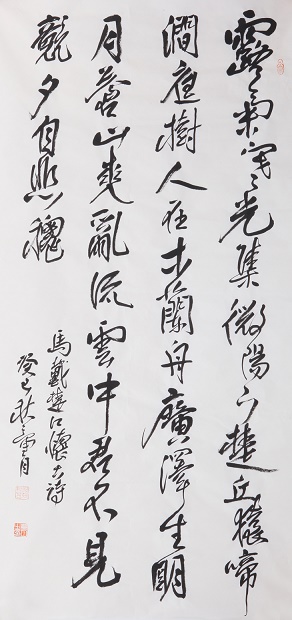 露氣寒光集微陽下楚丘猿啼
洞庭樹人在木蘭舟廣澤生明
月蒼山夾亂流雲中君不見
竟夕自悲穐
馬戴楚江懷古詩
癸巳秋月